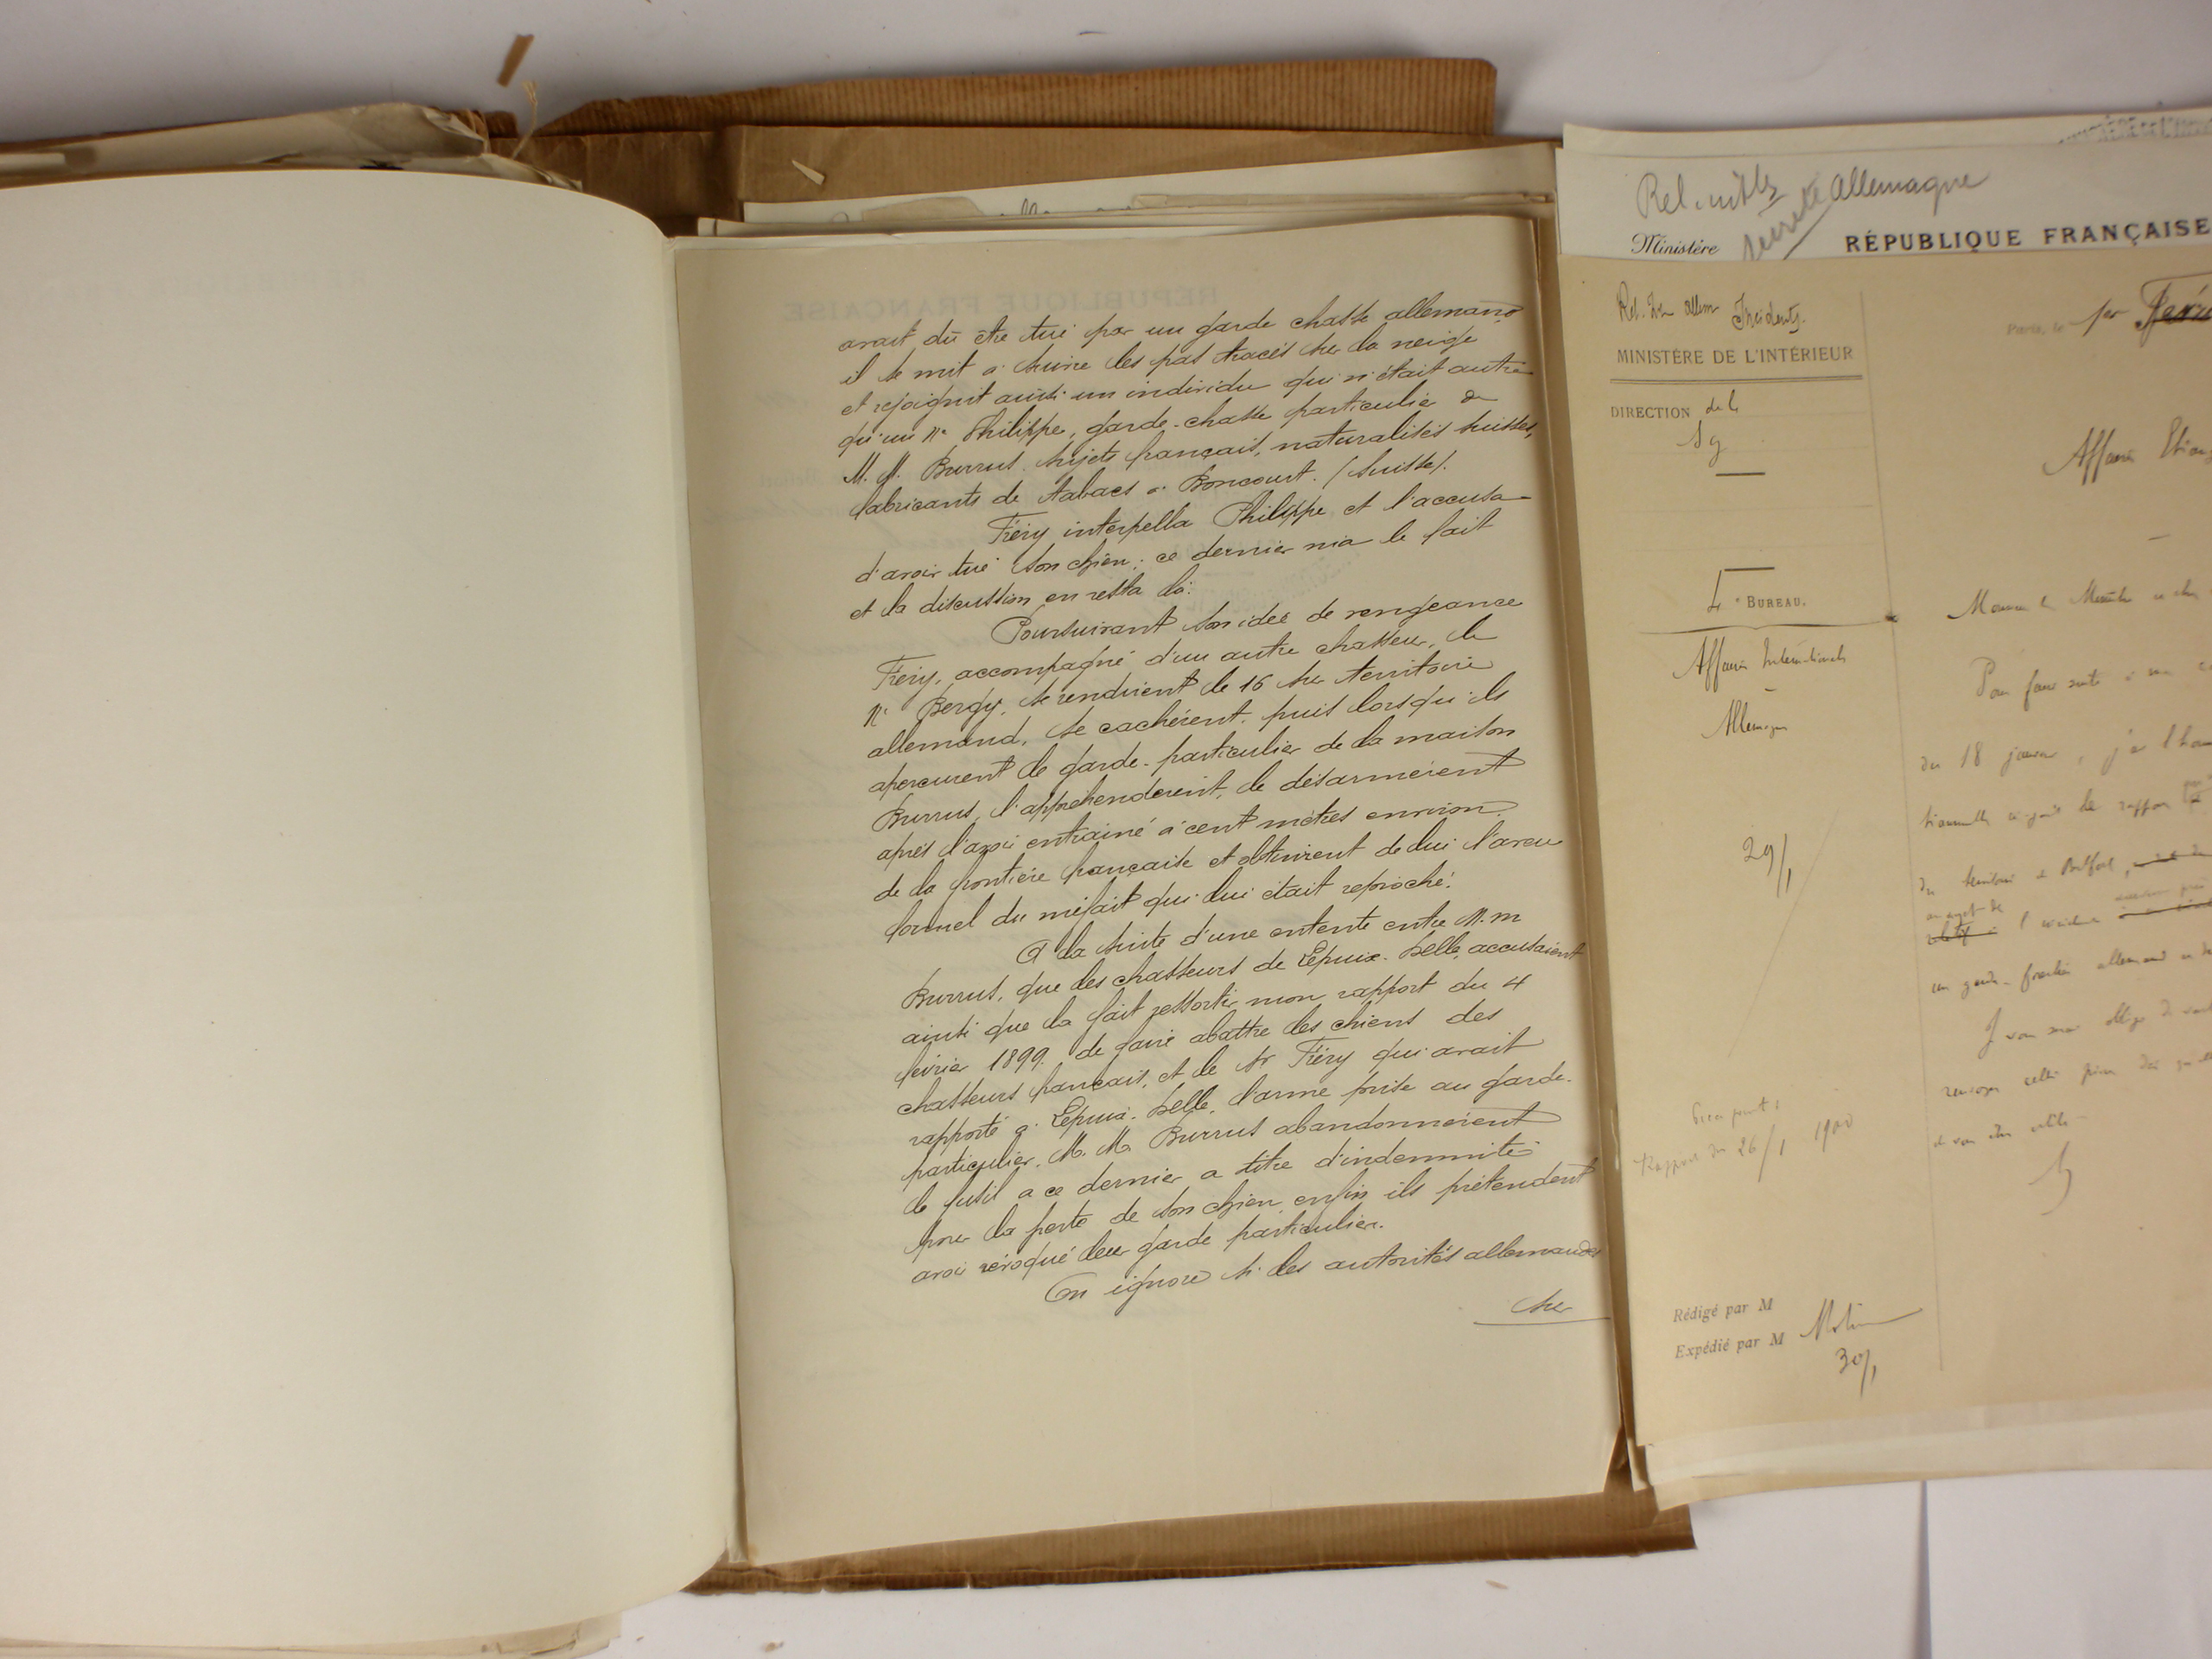 avait dû être tué par un garde chasse allemand
il se mit à suivre les pas tracés sur la neige
et rejoignit ainsi un individu qui n'était autre
qu'un Mr Philippe, garde-chasse particulier de
M. M. Burrus, sujets français, naturalisés suisses,
fabricants de tabacs à Boncourt. (Suisse).
Fréry interpella Philippe et l'accusa
d'avoir tué son chien; ce dernier nia le fait
et la discussion en resta là.
Poursuivant son idée de vengeance
Fréry, accompagné d'un autre chasseur, le
Mr Bergy, se rendirent le 16 sur territoire
allemand, se cachèrent, puis lorsqu'ils
aperçurent le garde-particulier de la maison
Burrus, l'appréhendèrent, le désarmèrent
après l'avoir entrainé à cent mètres environ
de la frontière française et obtinrent de lui l'aveu
formel du méfait qui lui était reproché.
A la suite d'une entente entre M.M
Burrus, que les chasseurs de Lepuix-Delle, accusaient
ainsi que la fait ressortir mon rapport du 4
février 1899, de faire abattre les chiens des
chasseurs français, et le Sr Fréry qui avait
rapporté à Lepuix-Delle, l'arme prise au garde-
particulier, M. M. Burrus abandonnèrent
le fusil a ce dernier a titre d'indemnité
pour la perte de son chien, enfin ils prétendent
avoir révoqué leur garde particulier.
On ignore si les autorités allemandes
sur
Rel. Allemagne
Ministère
RÉPUBLIQUE FRANÇAISE
Rel. allem Incidents.
MINISTÈRE DE L'INTÉRIEUR
DIRECTION de la
Sg
4e BUREAU.
Affaires Internationales
Allemagne
29/1
Rapport du 26/1 1900
Rédigé par M
Expédié par M
30/1
Paris, le 1er
Affaires Etrang
Monsieur le Ministre et cher
Pour faire suite à ma
du 18 janvier, j'ai l'hon
le rapport
du territoire de Belfort,
au sujet de
l'incident
un garde-frontière allemand